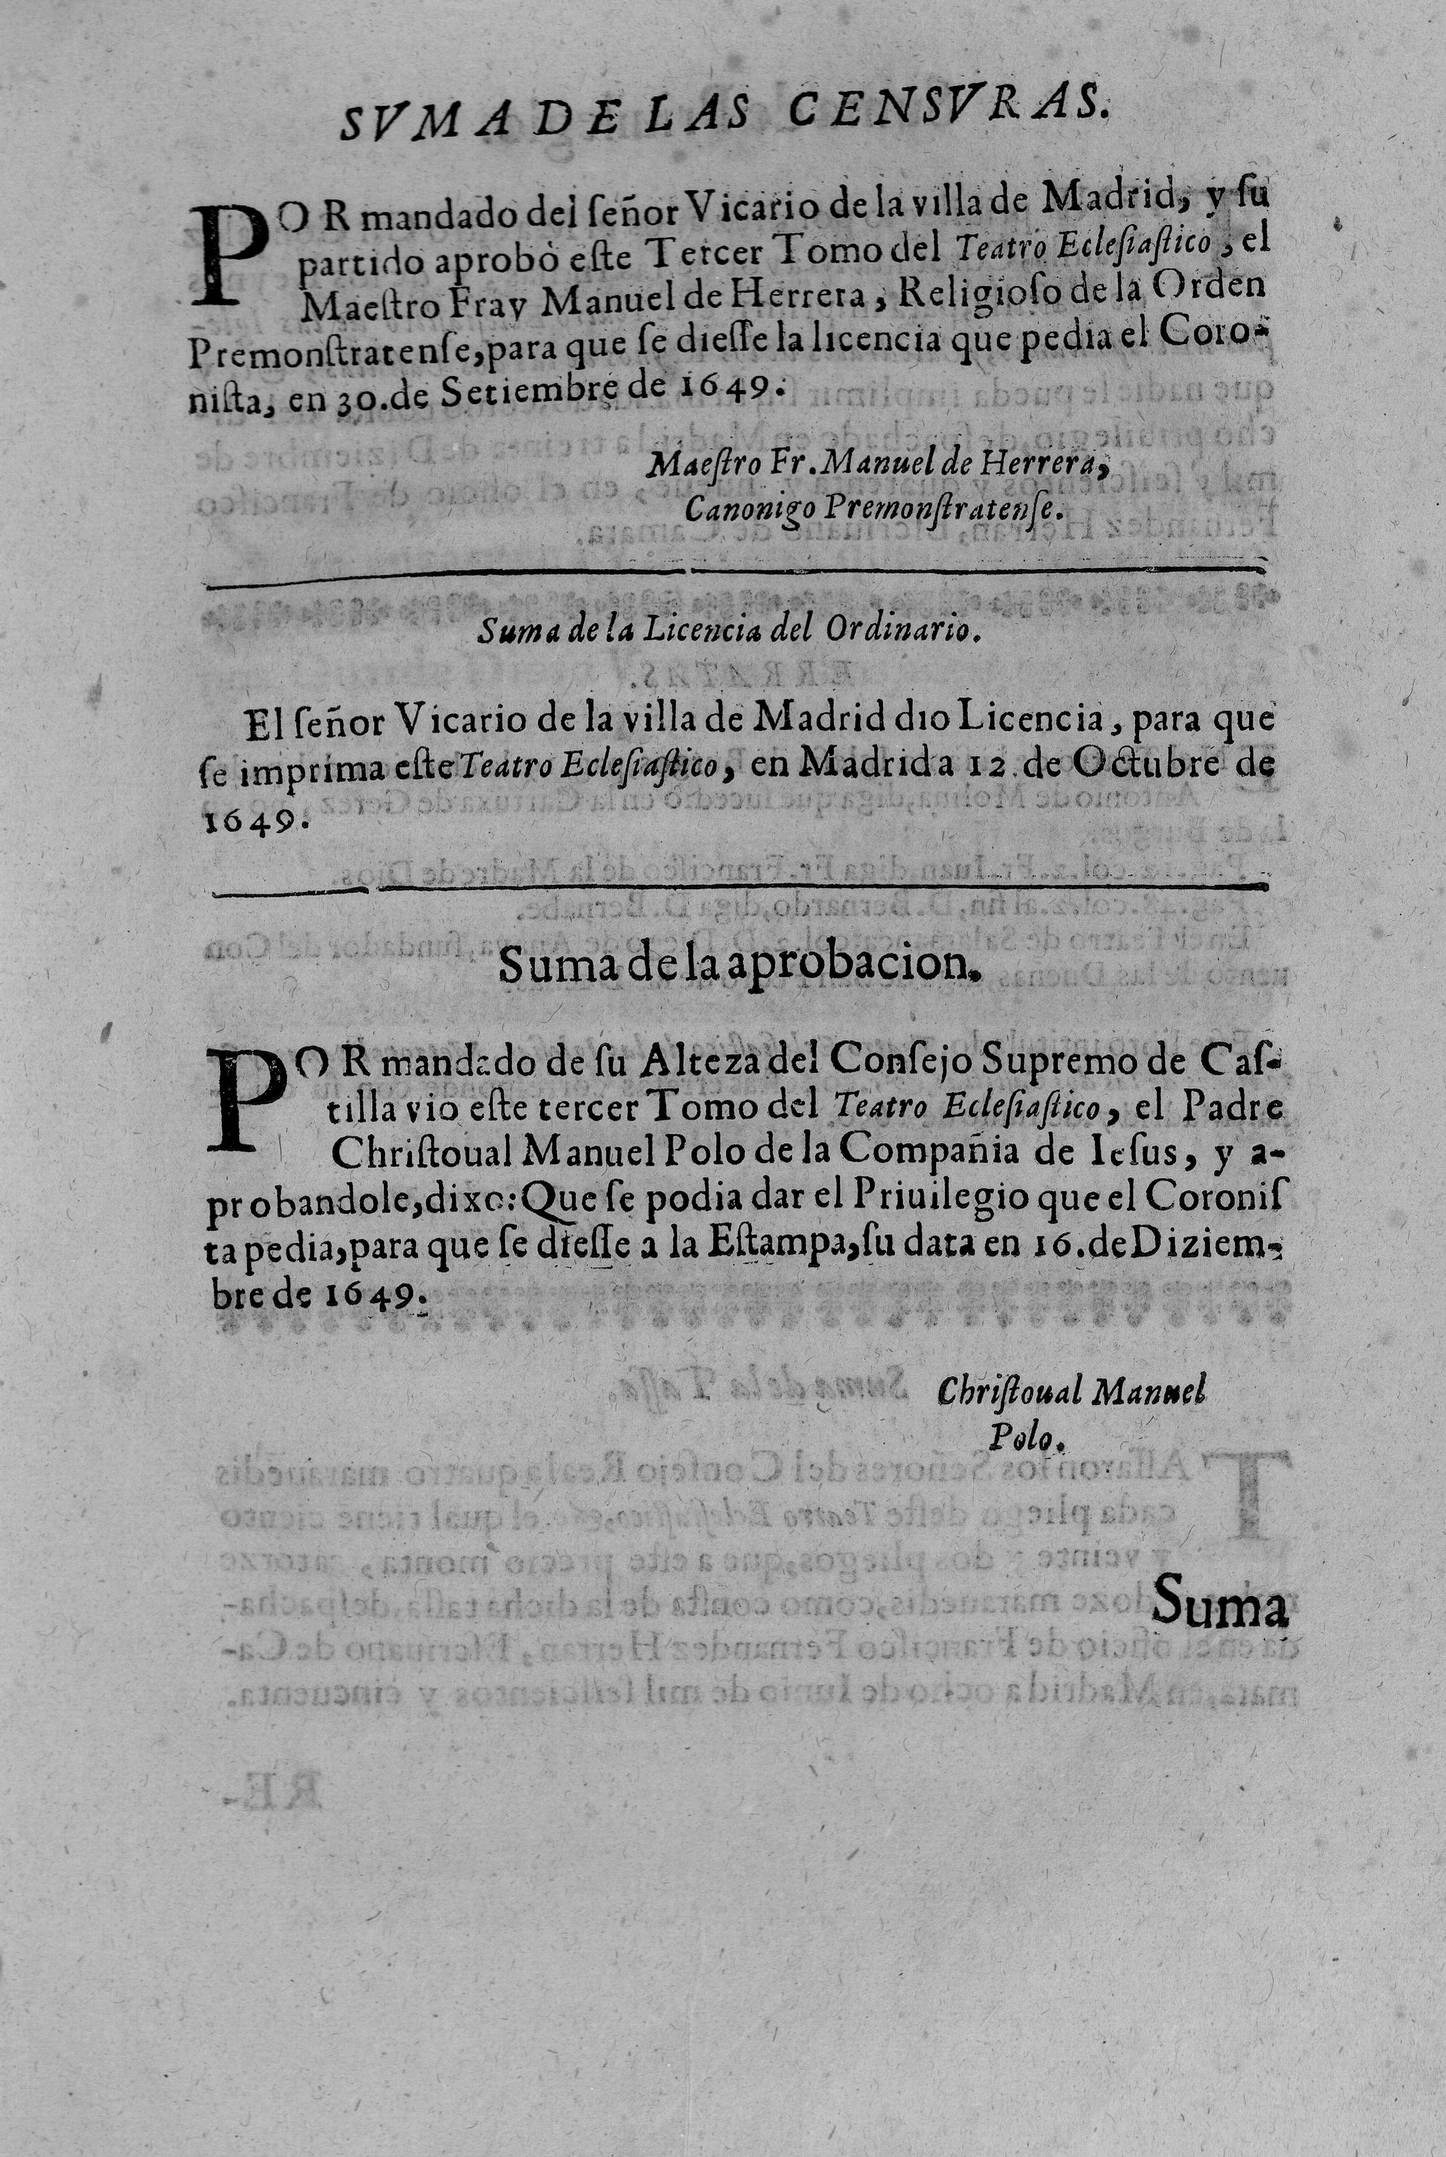 SVMA DE LAS CENSVRAS.
POR mandado del ſeñor Vicario de la villa de Madrid, y ſu
partido aprobò eſte Tercer Tomo del Teatro Ecleſiaſtico, el
Maeſtro Fray Manuel de Herrera, Religioſo de la Orden
Premonſtratenſe, para que ſe dieſſe la licencia que pedia el Coro-
niſta, en 30. de Setiembre de 1649.
Maeſtro Fr. Manuel de Herrera,
Canonigo Premonſtratenſe.
Suma de la Licencia del Ordinario.
El ſeñor Vicario de la villa de Madrid dio Licencia, para que
ſe imprima eſte Teatro Ecleſiaſtico, en Madrid a 12. de Octubre de
1649.
Suma de la aprobacion.
POR mandado de ſu Alteza del Conſejo Supremo de Caſ-
tilla vio eſte tercer Tomo del Teatro Ecleſiaſtico, el Padre
Chriſtoual Manuel Polo de la Compañia de Ieſus, y a-
probandole, dixo: Que ſe podia dar el Priuilegio que el Coroniſ
ta pedia, para que ſe dieſſe a la Eſtampa, ſu data en 16. de Diziem-
bre de 1649.
Chriſtoual Manuel
Polo.
Suma